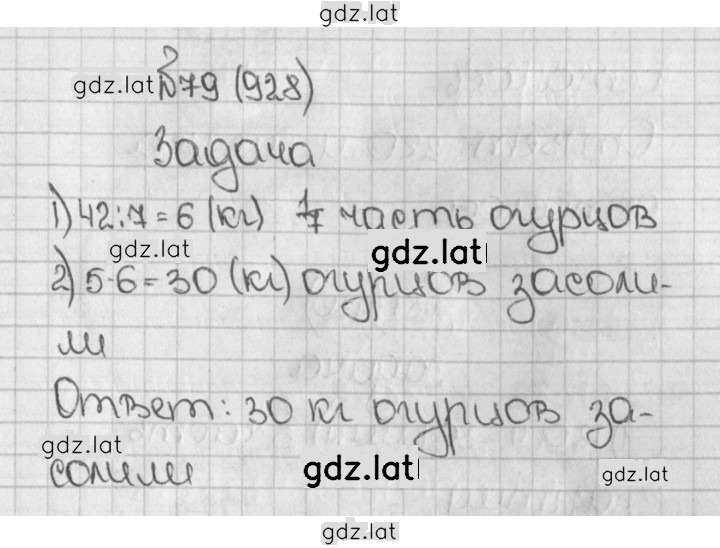 gdz.lat
gdz.lat №79 (928)
Задача
1) 42:7=6 (кг) 1/7 часть огурцов
gdz.lat gdz.lat
2) 5·6=30 (кг) огурцов засоли-
ли
Ответ: 30 кг огурцов за-
gdz.lat
солили gdz.lat gdz.lat
gdz.lat